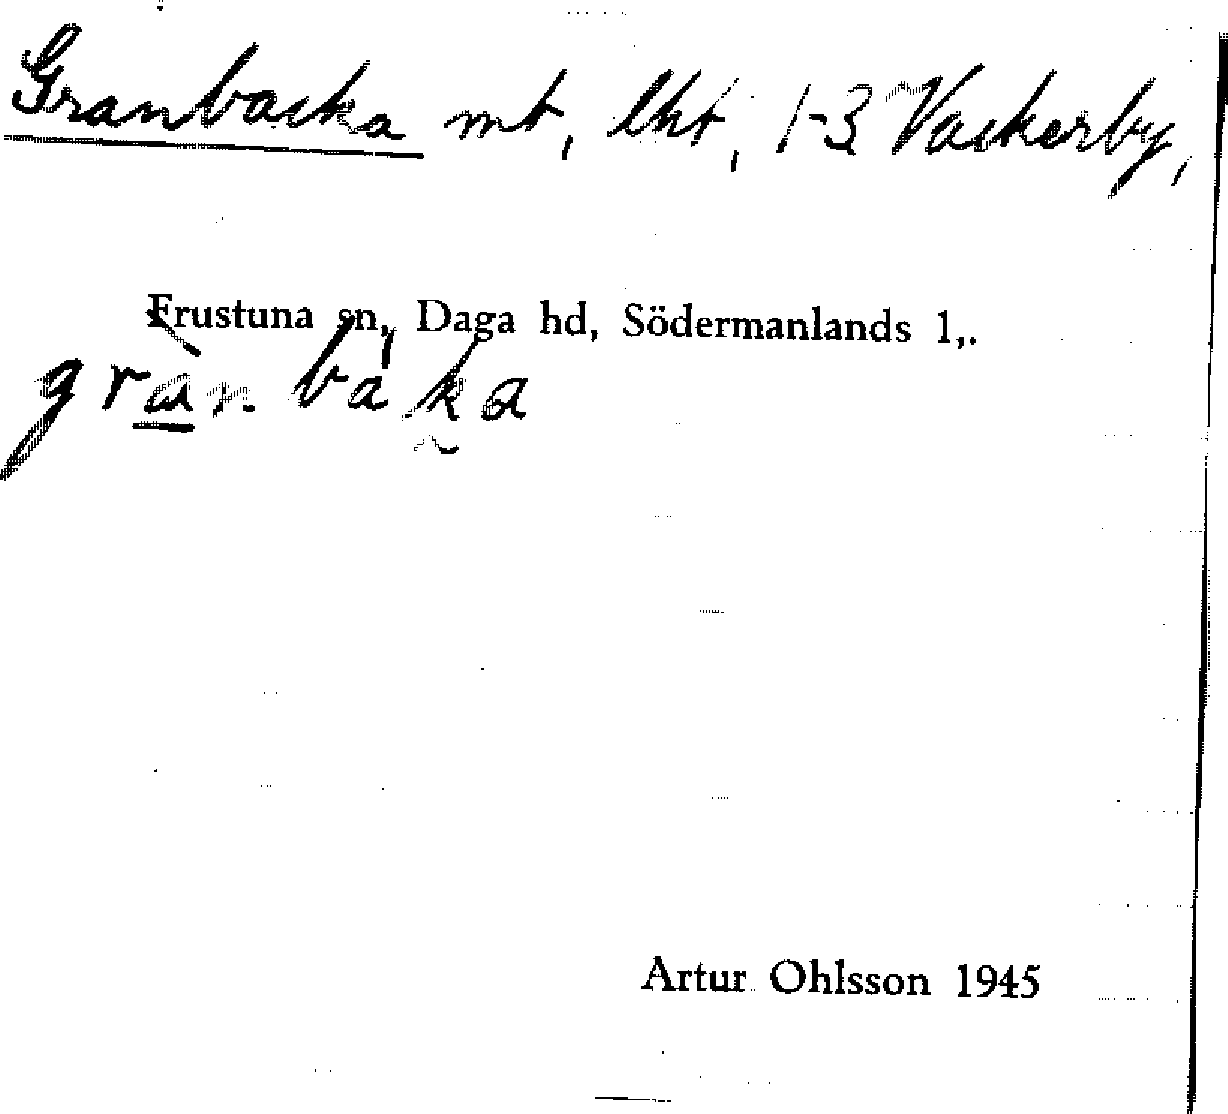 Granbacka mt, lht, 1-3 Vackerby,
Frustuna sn, Daga hd, Södermanlands l,.
gràn báka
Artur Ohlsson 1945